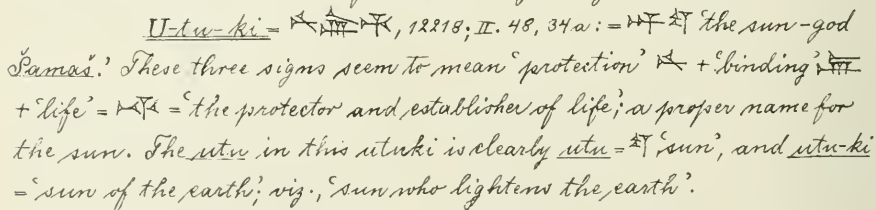 U-tu-ki = , 12218; II. 48, 34a: = 𒀭𒌓 ‘the sun-god
Šamaš.’ These three signs seem to mean ‘protection’ + ‘binding’
+ ‘life’ = = ‘the protector and establisher of life’; a proper name for
the sun. The utu in this utuki is clearly utu = 𒌓 ‘sun’, and utu-ki
= ‘sun of the earth’; viz., ‘sun who lightens the earth’.